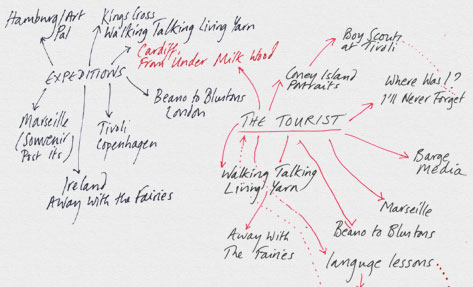 Hamburg/Art
Pal
Kings Cross
Walking Talking Living Yarn
Cardiff,
From Under Milk Wood
EXPEDITIONS
Marseille
(Souvenir)
Post Its
Tivoli
Copenhagen
Beano to Bluntons
London
Ireland
Away With the Fairies
Boy Scouts
at Tivoli
Coney Island
Portraits
Where Was I?
I'll Never Forget
THE TOURIST
Barge
Media
Walking Talking
Living Yarn
Marseille
Away With
The Fairies
Beano to Bluntons
languge lessons